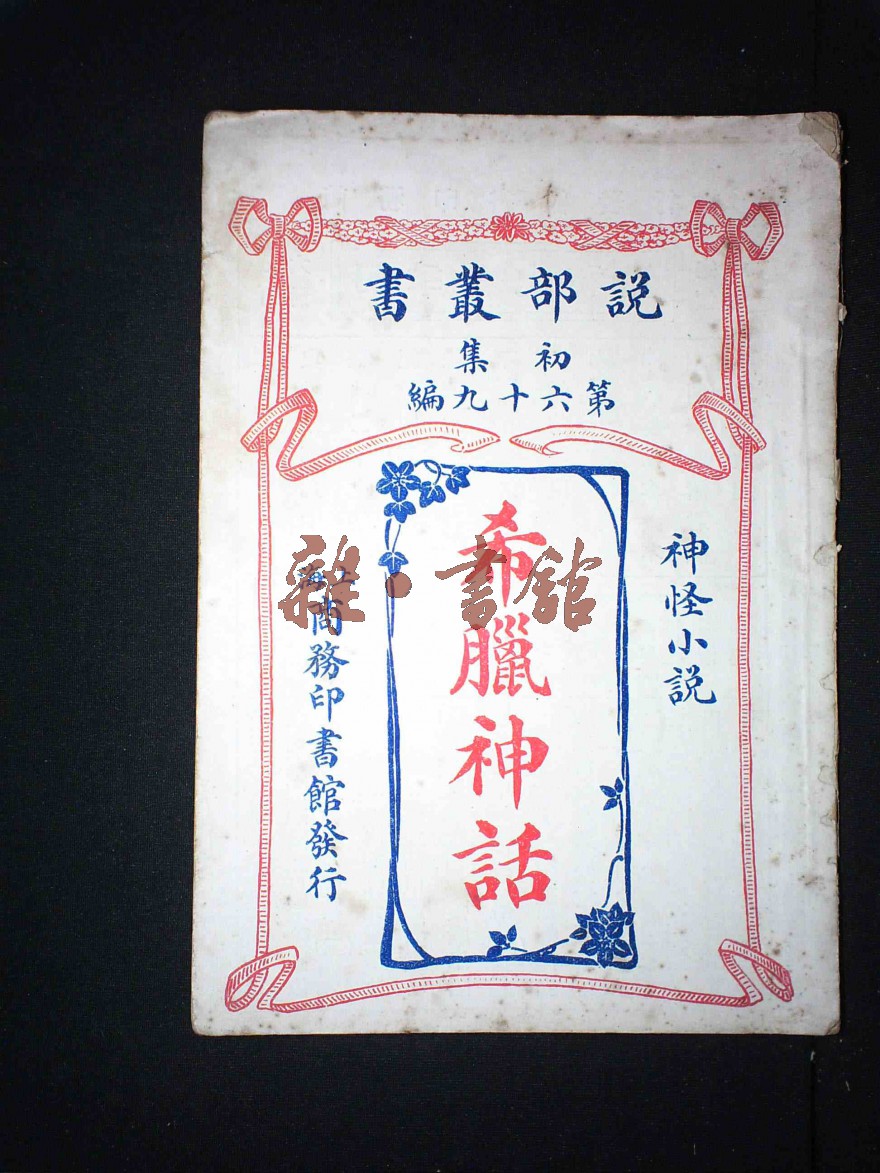 説部叢書
初集
第六十九編
神怪小説
希臘神話
上海商務印書館發行
雜·書館